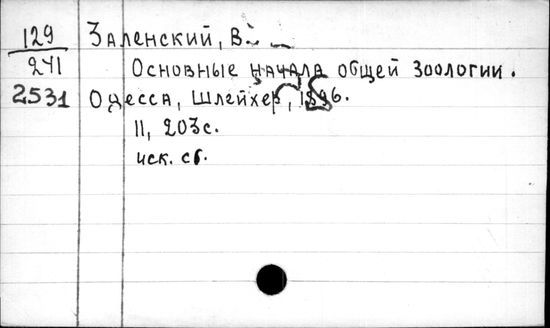 129 Заленский, В.
241 Основные начала общей зоологии.
2531 Одесса, Шлейхер, 1896.
II, 203с.
иск. сб.